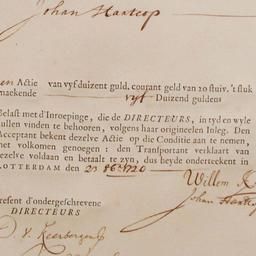 Johan Hartcop
en Actie van vyf duizent guld. courant geld van 20 stuiv. 't stuk
maekende vyf Duizend guldens
Belast met d'Inroepinge, die de DIRECTEURS, in tyd en wyle
zullen vinden te behooren, volgens haar origineelen Inleg. Den
Acceptant bekent dezelve Actie op die Conditie aan te nemen,
het volkomen genoegen: den Transportant verklaart van
dezelve voldaan en betaalt te zyn, dus beyde onderteekent in
ROTTERDAM den 1720
Willem
Johan Hartcop
Present d'ondergeschrevene
DIRECTEURS